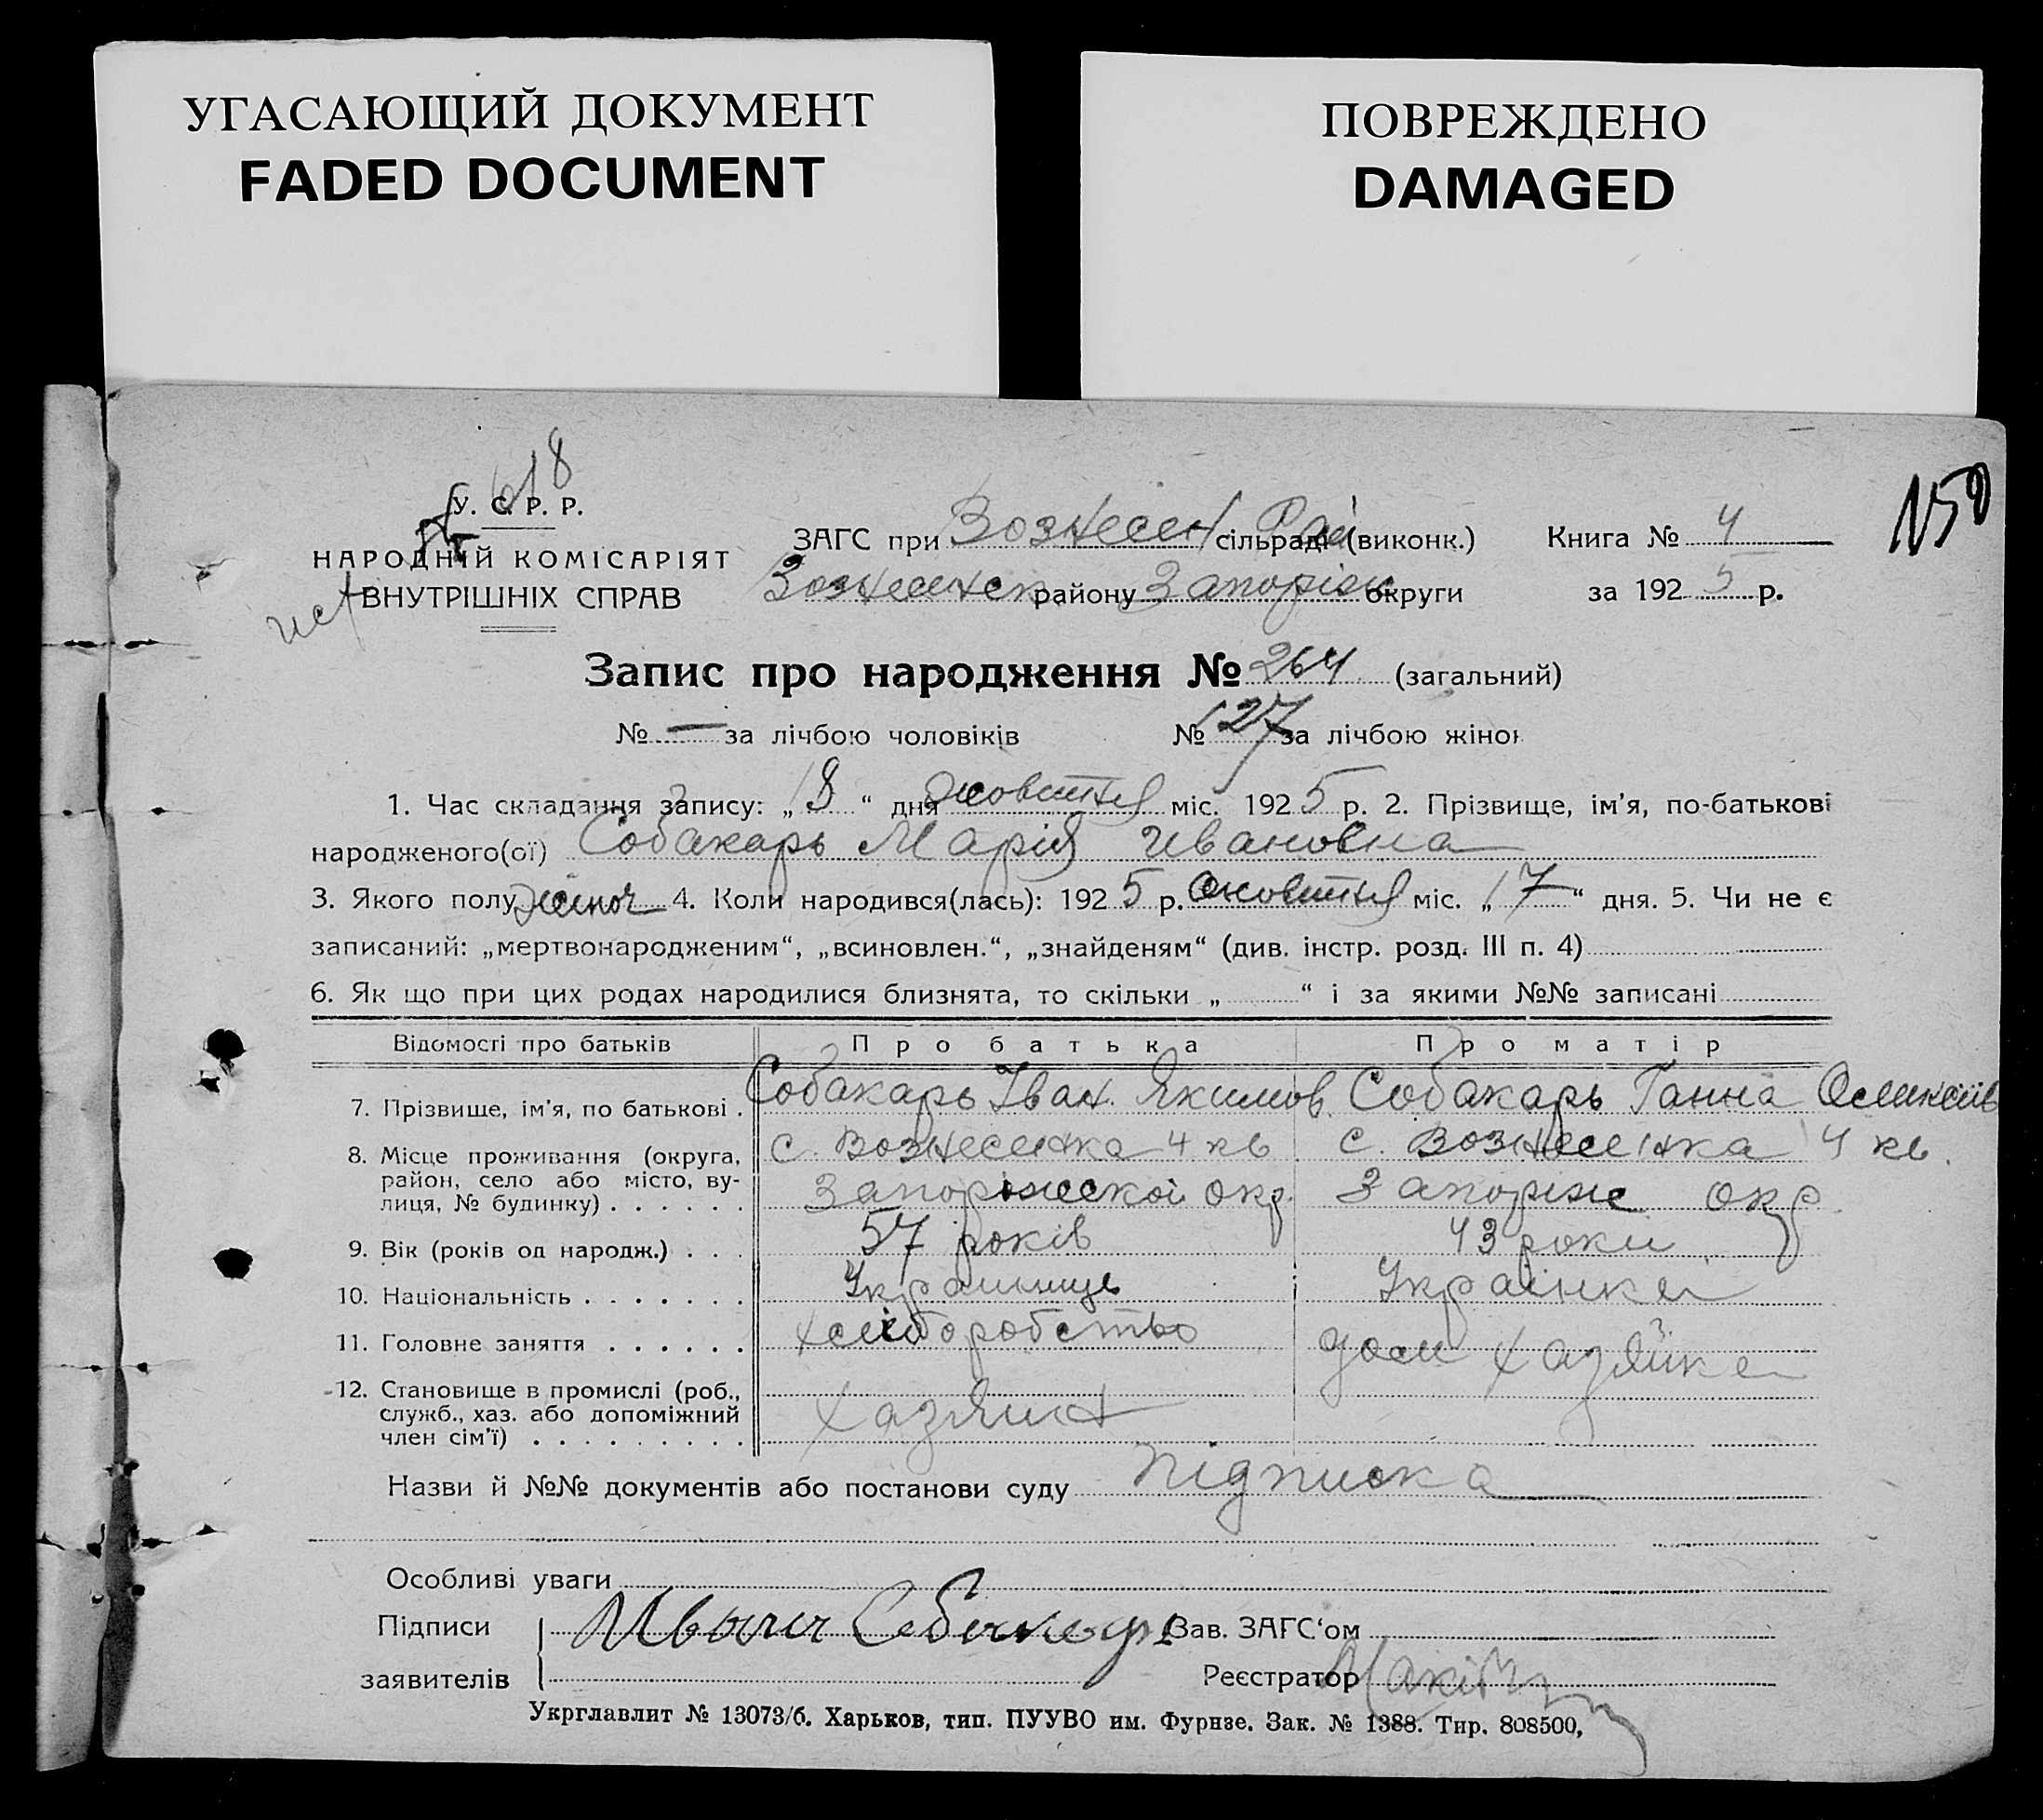 УГАСАЮЩИЙ ДОКУМЕНТ
FADED DOCUMENT
ПОВРЕЖДЕНО
DAMAGED
618
150
У. С. Р. Р.
НАРОДНІЙ КОМІСАРІЯТ
ВНУТРІШНІХ СПРАВ
ЗАГС при Вознесен Рай сільраді (виконк.) Книга № 4
Вознесенск району Запоріж округи за 1925 р.
Запис про народження № 264 (загальний)
№ — за лічбою чоловіків № 127 за лічбою жінок
1. Час складання запису: „18“ дня жовтня міс. 1925 р. 2. Прізвище, ім'я, по-батькові
народженого(ої) Собакарь Марія Ивановна
3. Якого полу жіноч 4. Коли народився(лась): 1925 р. жовтня міс. „17“ дня. 5. Чи не є
записаний: „мертвонародженим“, „всиновлен.“, „знайденям“ (див. інстр. розд. III п. 4)
6. Як що при цих родах народилися близнята, то скільки „ “ і за якими №№ записані
Відомості про батьків Про батька Про матір
7. Прізвище, ім'я, по батькові . Собакарь Іван. Якимов. Собакарь Ганна
8. Місце проживання (округа, район, село або місто, ву-лиця, № будинку) . . . . . . с. Вознесенка 4 кв Запоріжской окр. с. Вознесенка 4 кв. Запоріж окр
9. Вік (років од народж.) . . . 57 років 43 роки
10. Національність . . . . . . . Українець Українка
11. Головне заняття . . . . . . хліборобство дом хазяйка
12. Становище в промислі (роб., служб., хаз. або допоміжний член сім'ї) . . . . . . . . . хазяин
Назви й №№ документів або постанови суду підписка
Особливі уваги
Підписи Иван Собакарь Зав. ЗАГС'ом
заявителів Реєстратор
Укрглавлит № 13073/б. Харьков, тип. ПУУВО им. Фрунзе. Зак. № 1388. Тир. 808500,